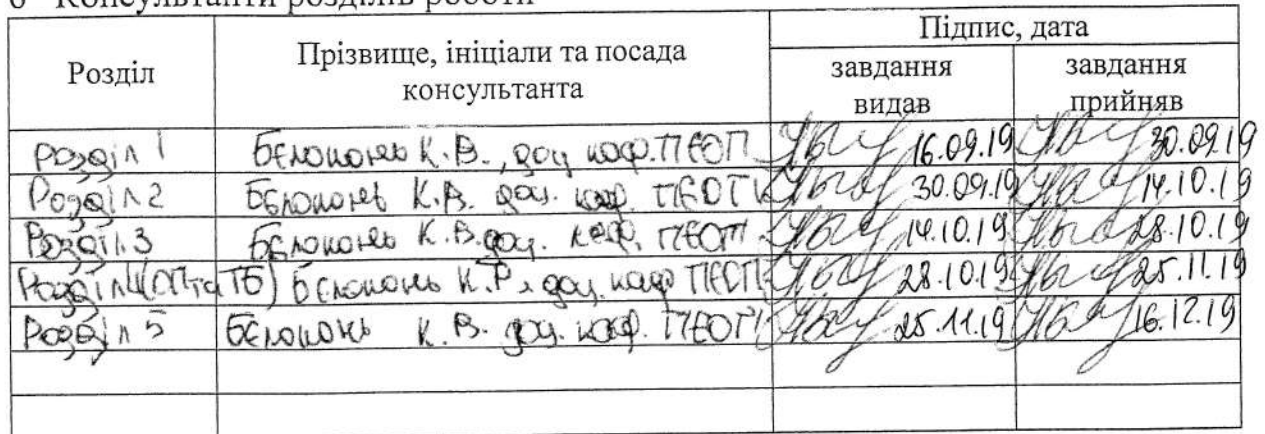 6 Консультанти розділів роботи
Розділ
Прізвище, ініціали та посада
консультанта
Підпис, дата
завдання
видав
завдання
прийняв
Розділ 1 Бєлоконь К.В., доц каф. ПЕОП 16.09.19 30.09.19
Розділ 2 Бєлоконь К.В. доц. каф. ПЕОП 30.09.19 14.10.19
Розділ 3 Бєлоконь К.В. доц. каф. ПЕОП 14.10.19 28.10.19
Розділ 4 (ОП та ТБ) Бєлоконь К.В. доц. каф ПЕОП 28.10.19 25.11.19
Розділ 5 Бєлоконь К.В. доц. каф. ПЕОП 25.11.19 16.12.19